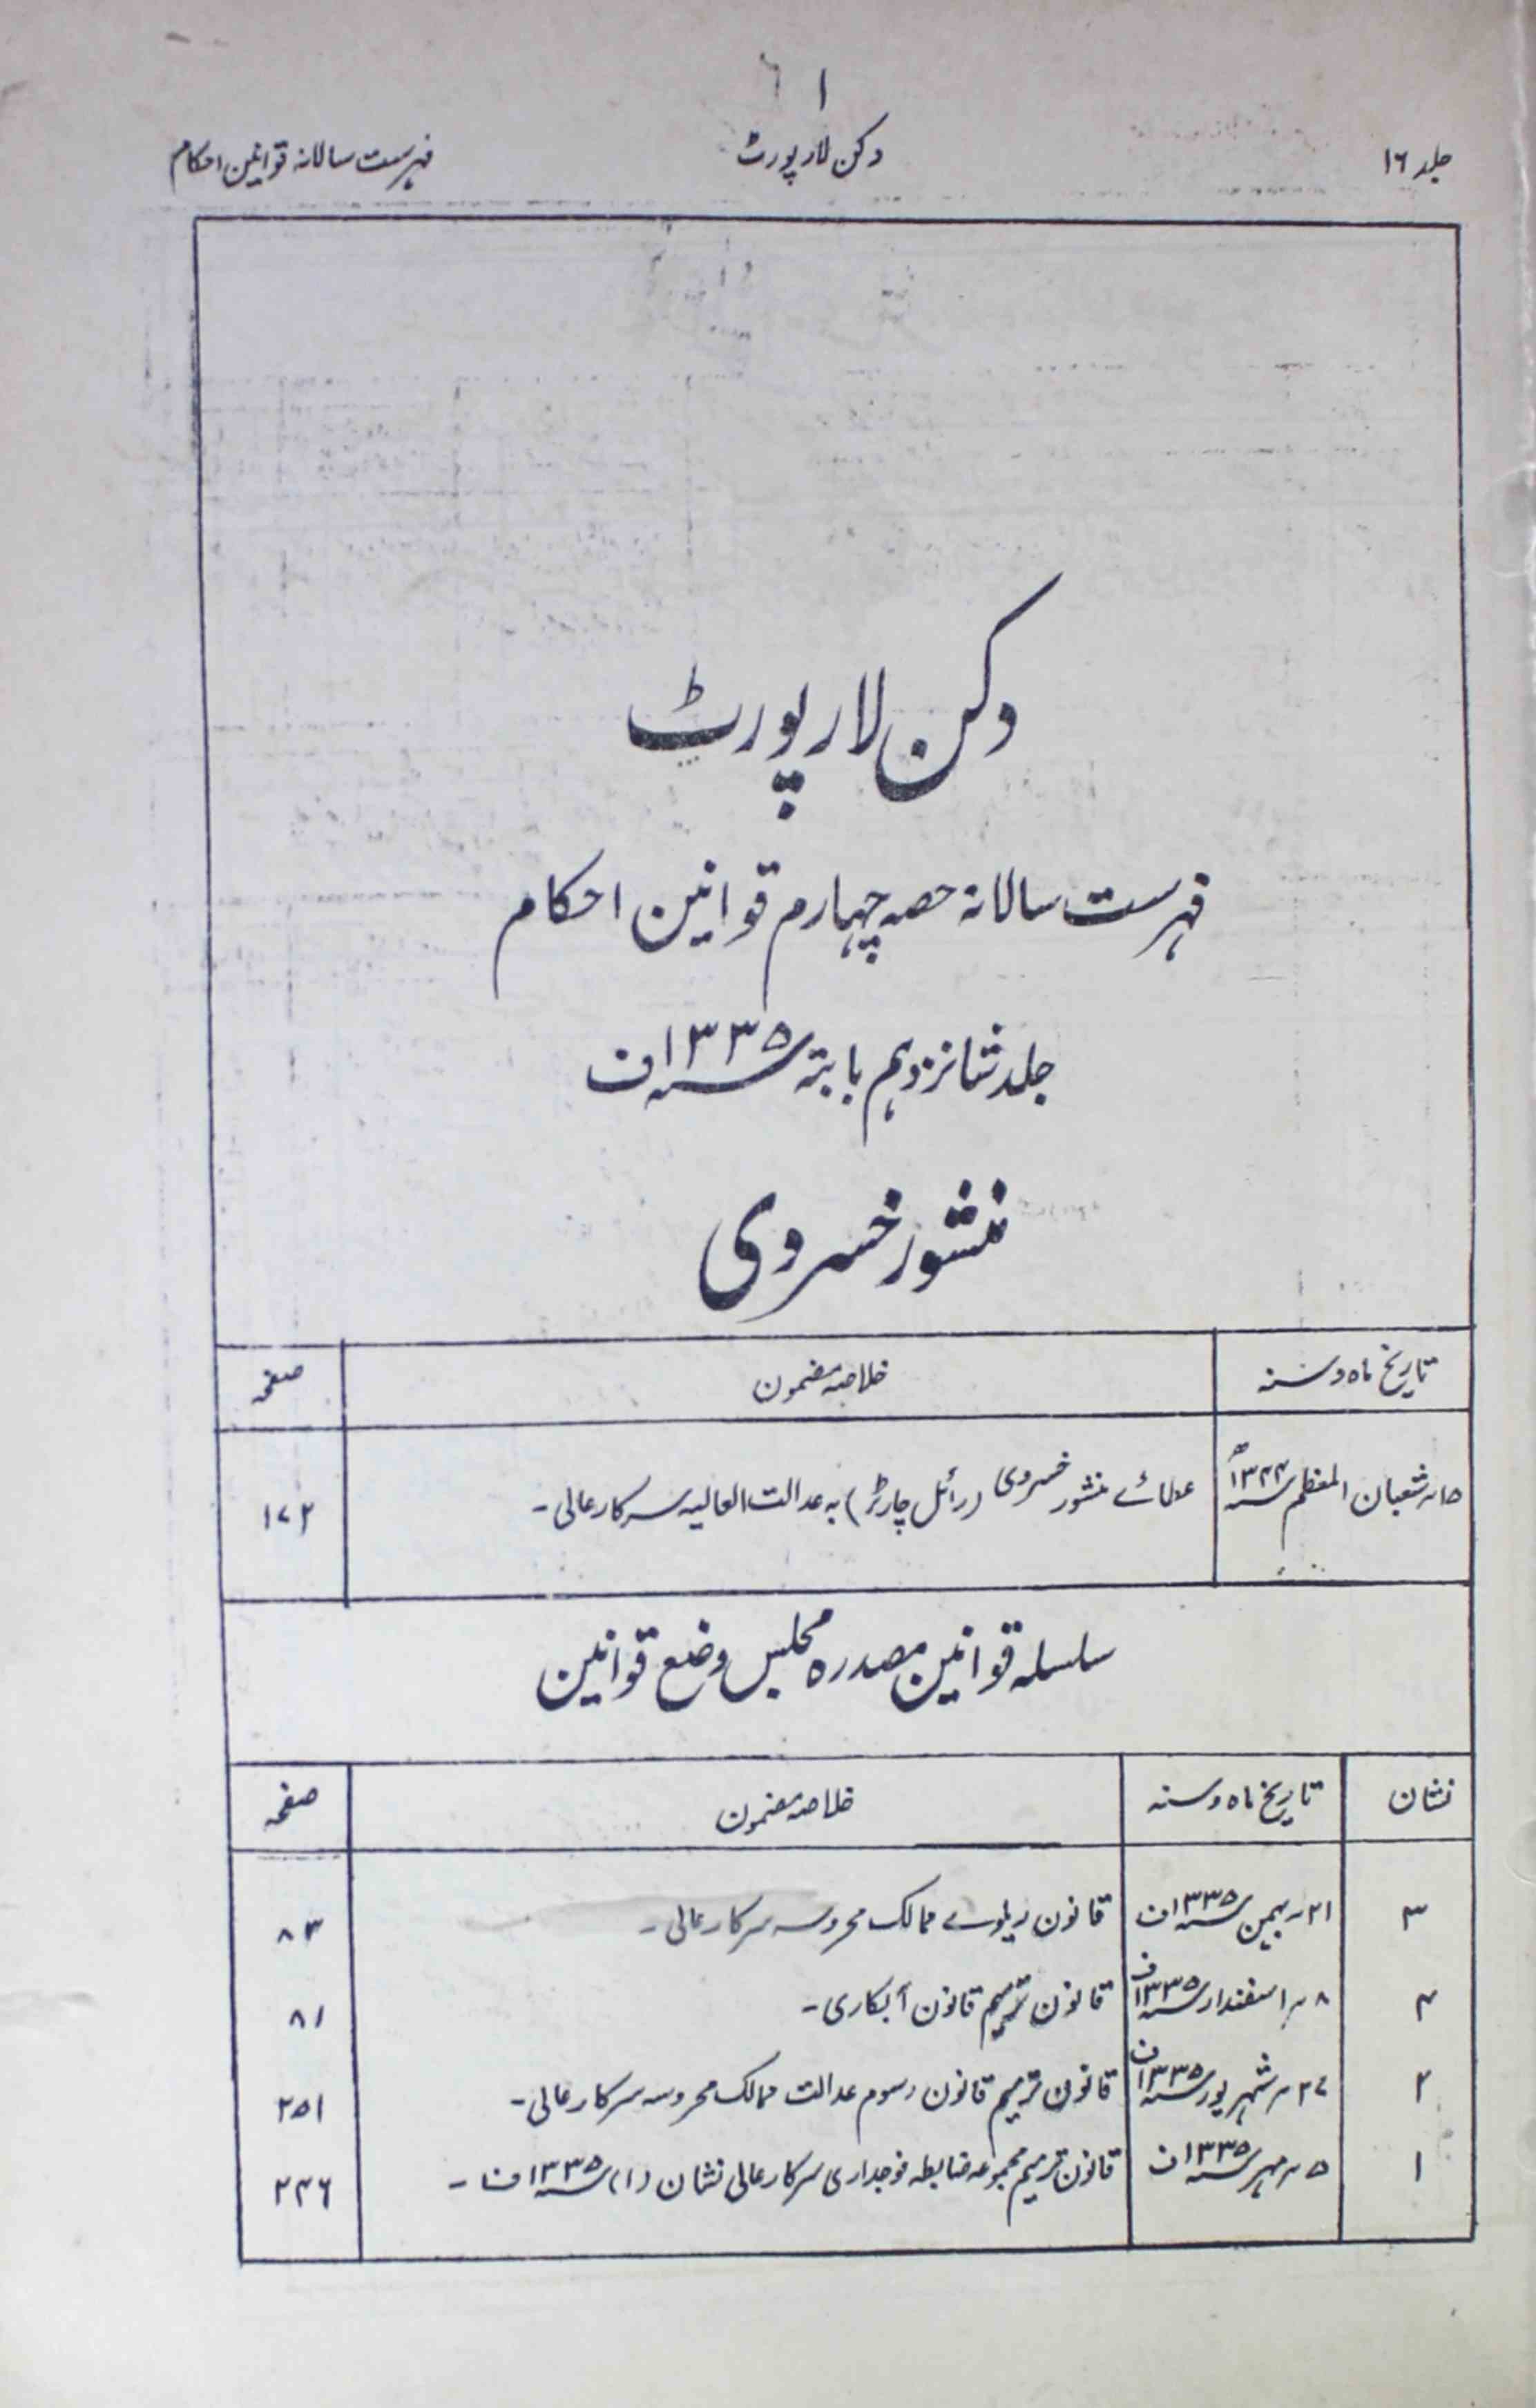 ۱
جلد ۱۶ دکن لا رپورٹ فہرست سالانہ قوانین احکام
دکن لا رپورٹ
فہرست سالانہ حصہ چہارم قوانین احکام
جلد شانزدہم بابتہ سنہ ۱۳۳۵ ف
منشور خسروی
تاریخ ماہ و سنہ خلاصہ مضمون صفحہ
۱۵ر شعبان المعظم سنہ ۱۳۴۴ھ عطائے منشور خسروی (رائل چارٹر) بہ عدالت العالیہ سرکار عالی۔ ۱۷۲
سلسلہ قوانین مصدرہ مجلس وضع قوانین
نشان تاریخ ماہ و سنہ خلاصہ مضمون صفحہ
۳ ۲۱ر بہمن سنہ ۱۳۳۵ ف قانون ریلوے ممالک محروسہ سرکار عالی۔ ۸۳
۴ ۸ر اسفندار سنہ ۱۳۳۵ ف قانون ترمیم قانون آبکاری۔ ۸۱
۲ ۲۷ر شہریور سنہ ۱۳۳۵ ف قانون ترمیم قانون رسوم عدالت ممالک محروسہ سرکار عالی۔ ۲۵۱
۱ ۵ر مہر سنہ ۱۳۳۵ ف قانون ترمیم مجموعہ ضابطہ فوجداری سرکار عالی نشان (۱) سنہ ۱۳۳۵ ف۔ ۲۴۶